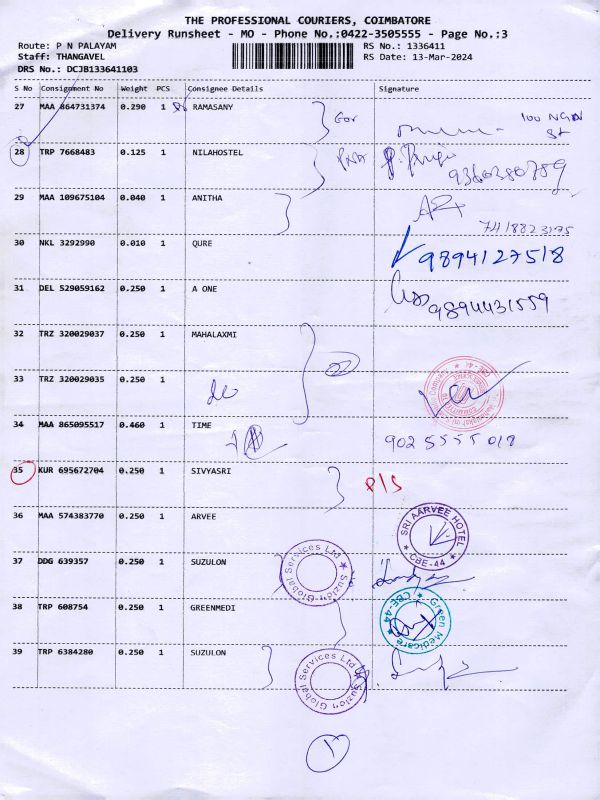 THE PROFESSIONAL COURIERS, COIMBATORE
Delivery Runsheet - MO - Phone No.:0422-3505555 - Page No.:3
Route: P N PALAYAM
RS No.: 1336411
Staff: THANGAVEL
RS Date: 13-Mar-2024
DRS No.: DCJB133641103
S No Consignment No Weight PCS Consignee Details Signature
27 MAA 864731374 0.290 1 RAMASANY
28 TRP 7668483 0.125 1 NILAHOSTEL
9360380789
29 MAA 109675104 0.040 1 ANITHA
7418823175
30 NKL 3292990 0.010 1 QURE
9894127518
31 DEL 529059162 0.250 1 A ONE
9894431559
32 TRZ 320029037 0.250 1 MAHALAXMI
33 TRZ 320029035 0.250 1
34 MAA 865095517 0.460 1 TIME
9025555018
35 KUR 695672704 0.250 1 SIVYASRI P/S
36 MAA 574383770 0.250 1 ARVEE
SRI AARVEE HOTEL
CBE-44
37 DDG 639357 0.250 1 SUZULON
Suzlon Global Services Ltd
38 TRP 608754 0.250 1 GREENMEDI
Green Medicare
CBE-44
39 TRP 6384280 0.250 1 SUZULON
Suzlon Global Services Ltd
1